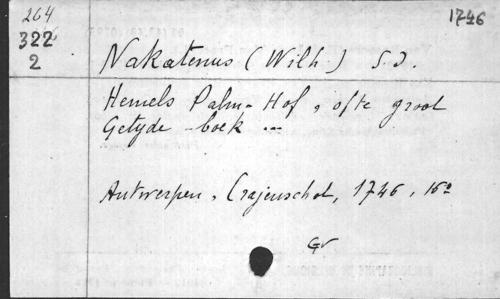 264
1746
322
2
Nakatenus (Wilh.) S.J.
Hemels Palm-Hof, ofte groot
Getyde-boek ...
Antwerpen, Crajenschot, 1746, 16º
Gv